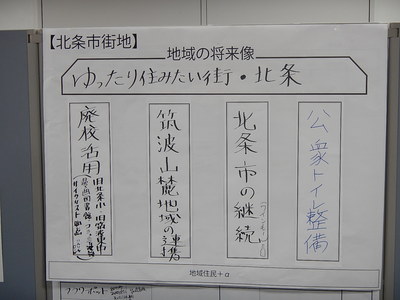 【北条市街地】
地域の将来像
ゆったり住みたい街・北条
公衆トイレ整備
北条市の継続
筑波山麓地域の連携
廃校活用
旧北条小 旧筑波東中
地域住民+α